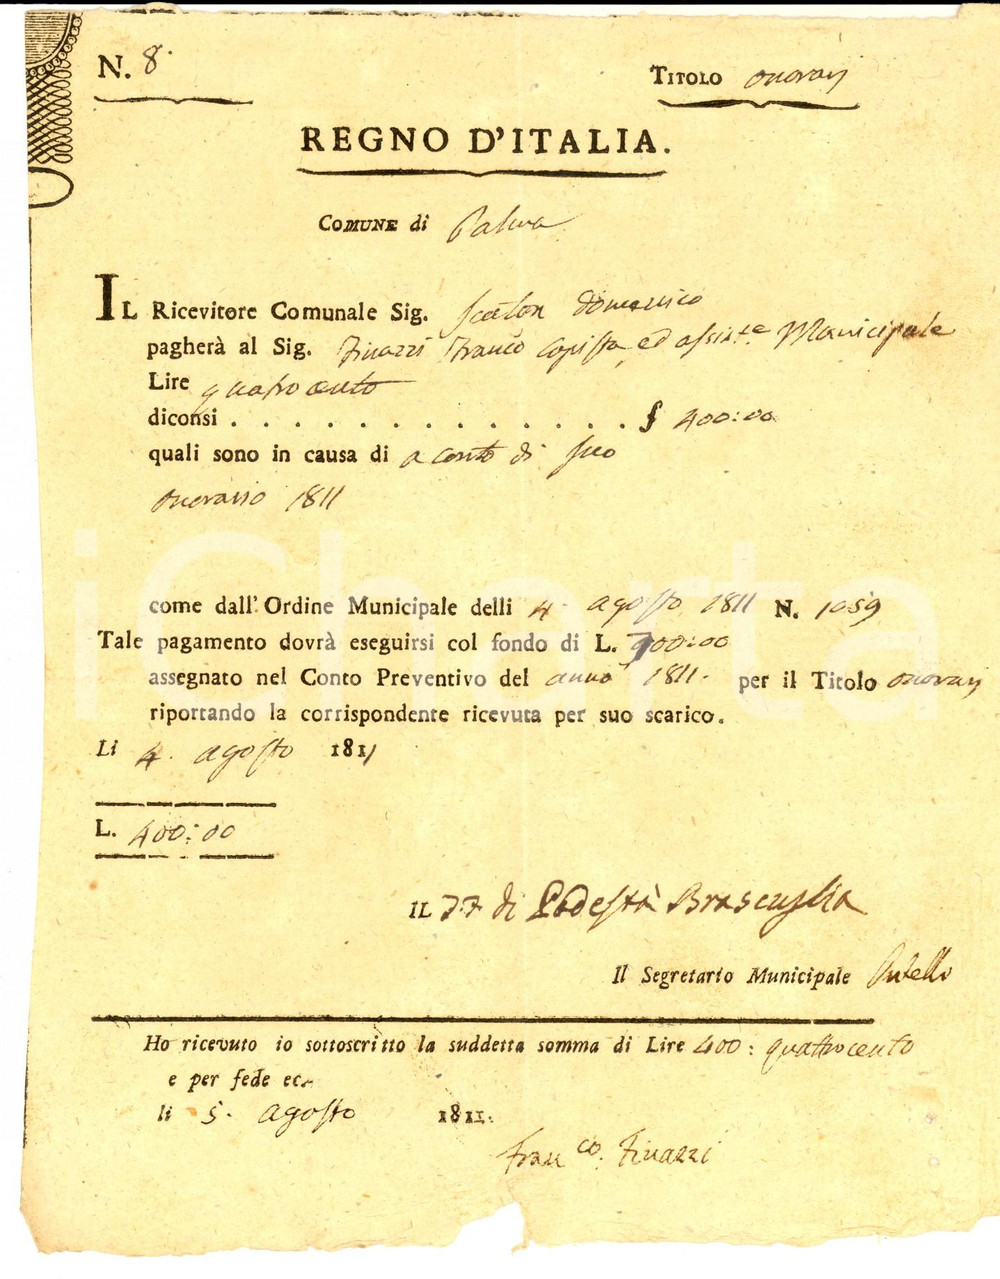 N. 8.
TITOLO onorarj
REGNO D'ITALIA.
COMUNE di Palma
IL Ricevitore Comunale Sig. Scalon Domenico
pagherà al Sig. Finazzi Franco Copista, ed assis.te Municipale
Lire quatrocento
diconsi . . . . . . . . . . . . . . £ 400:00
quali sono in causa di a conto di suo
onorario 1811
come dall' Ordine Municipale delli 4. agosto 1811 N. 1059
Tale pagamento dovrà eseguirsi col fondo di L. 700:00
assegnato nel Conto Preventivo del anno 1811. per il Titolo onorarj
riportando la corrispondente ricevuta per suo scarico.
Li 4. agosto 1811
L. 400:00
IL FF di Podestà Brascuglia
Il Segretario Municipale Putello
Ho ricevuto io sottoscritto la suddetta somma di Lire 400: quattrocento
e per fede ec.
li 5. agosto 1811.
Fran.co: Finazzi
iCharta